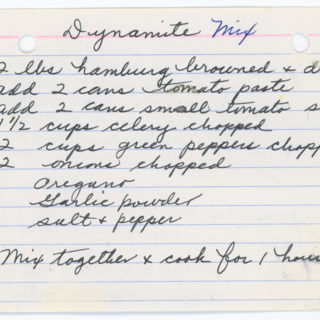 Dynamite Mix
2 lbs hamburg browned & d
add 2 cans tomato paste
add 2 cans small tomato s
1 1/2 cups celery chopped
2 cups green peppers chopp
2 onions chopped
Oregano
Garlic powder
salt & pepper
Mix together & cook for 1 hour